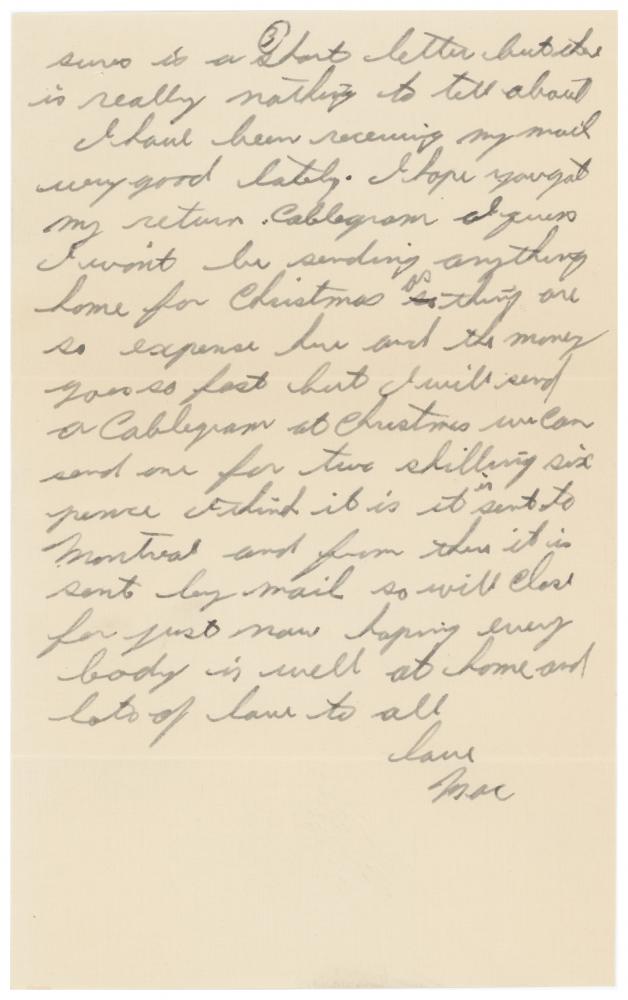 3
sures is a short letter but there
is really nothing to tell about
I have been receiving my mail
very good lately. I hope you got
my return Cablegram I guess
I won't be sending anything
home for Christmas as thing are
so expense here and the money
goes so fast but I will send
a Cablegram at Christmas we Can
send one for two shilling six
pence I think it is it is sent to
Montreal and from there it is
sent by mail so will Close
for just now hoping every
body is well at home and
lots of love to all
love
Mac